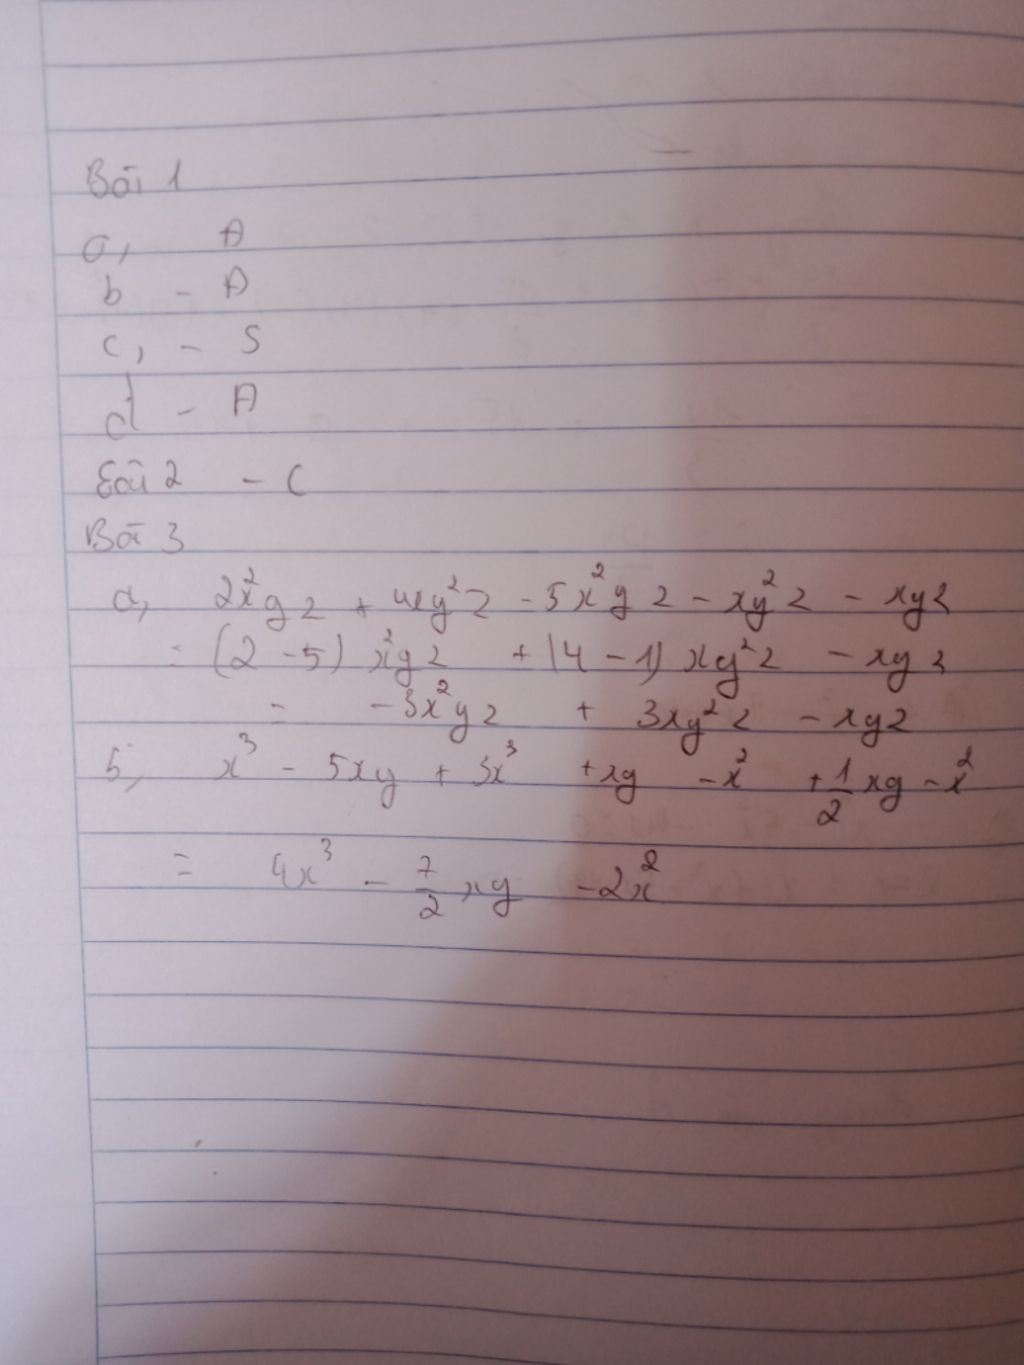 Bài 1
a, Đ
b - Đ
c, - S
d - Đ
Bài 2 - C
Bài 3
a, 2x²yz + 4xy²z - 5x²yz - xy²z - xyz
= (2 - 5) x²yz + (4 - 1) xy²z - xyz
= -3x²yz + 3xy²z - xyz
b, x³ - 5xy + 3x³ + xy - x² + 1/2 xy - x²
= 4x³ - 7/2 xy - 2x²